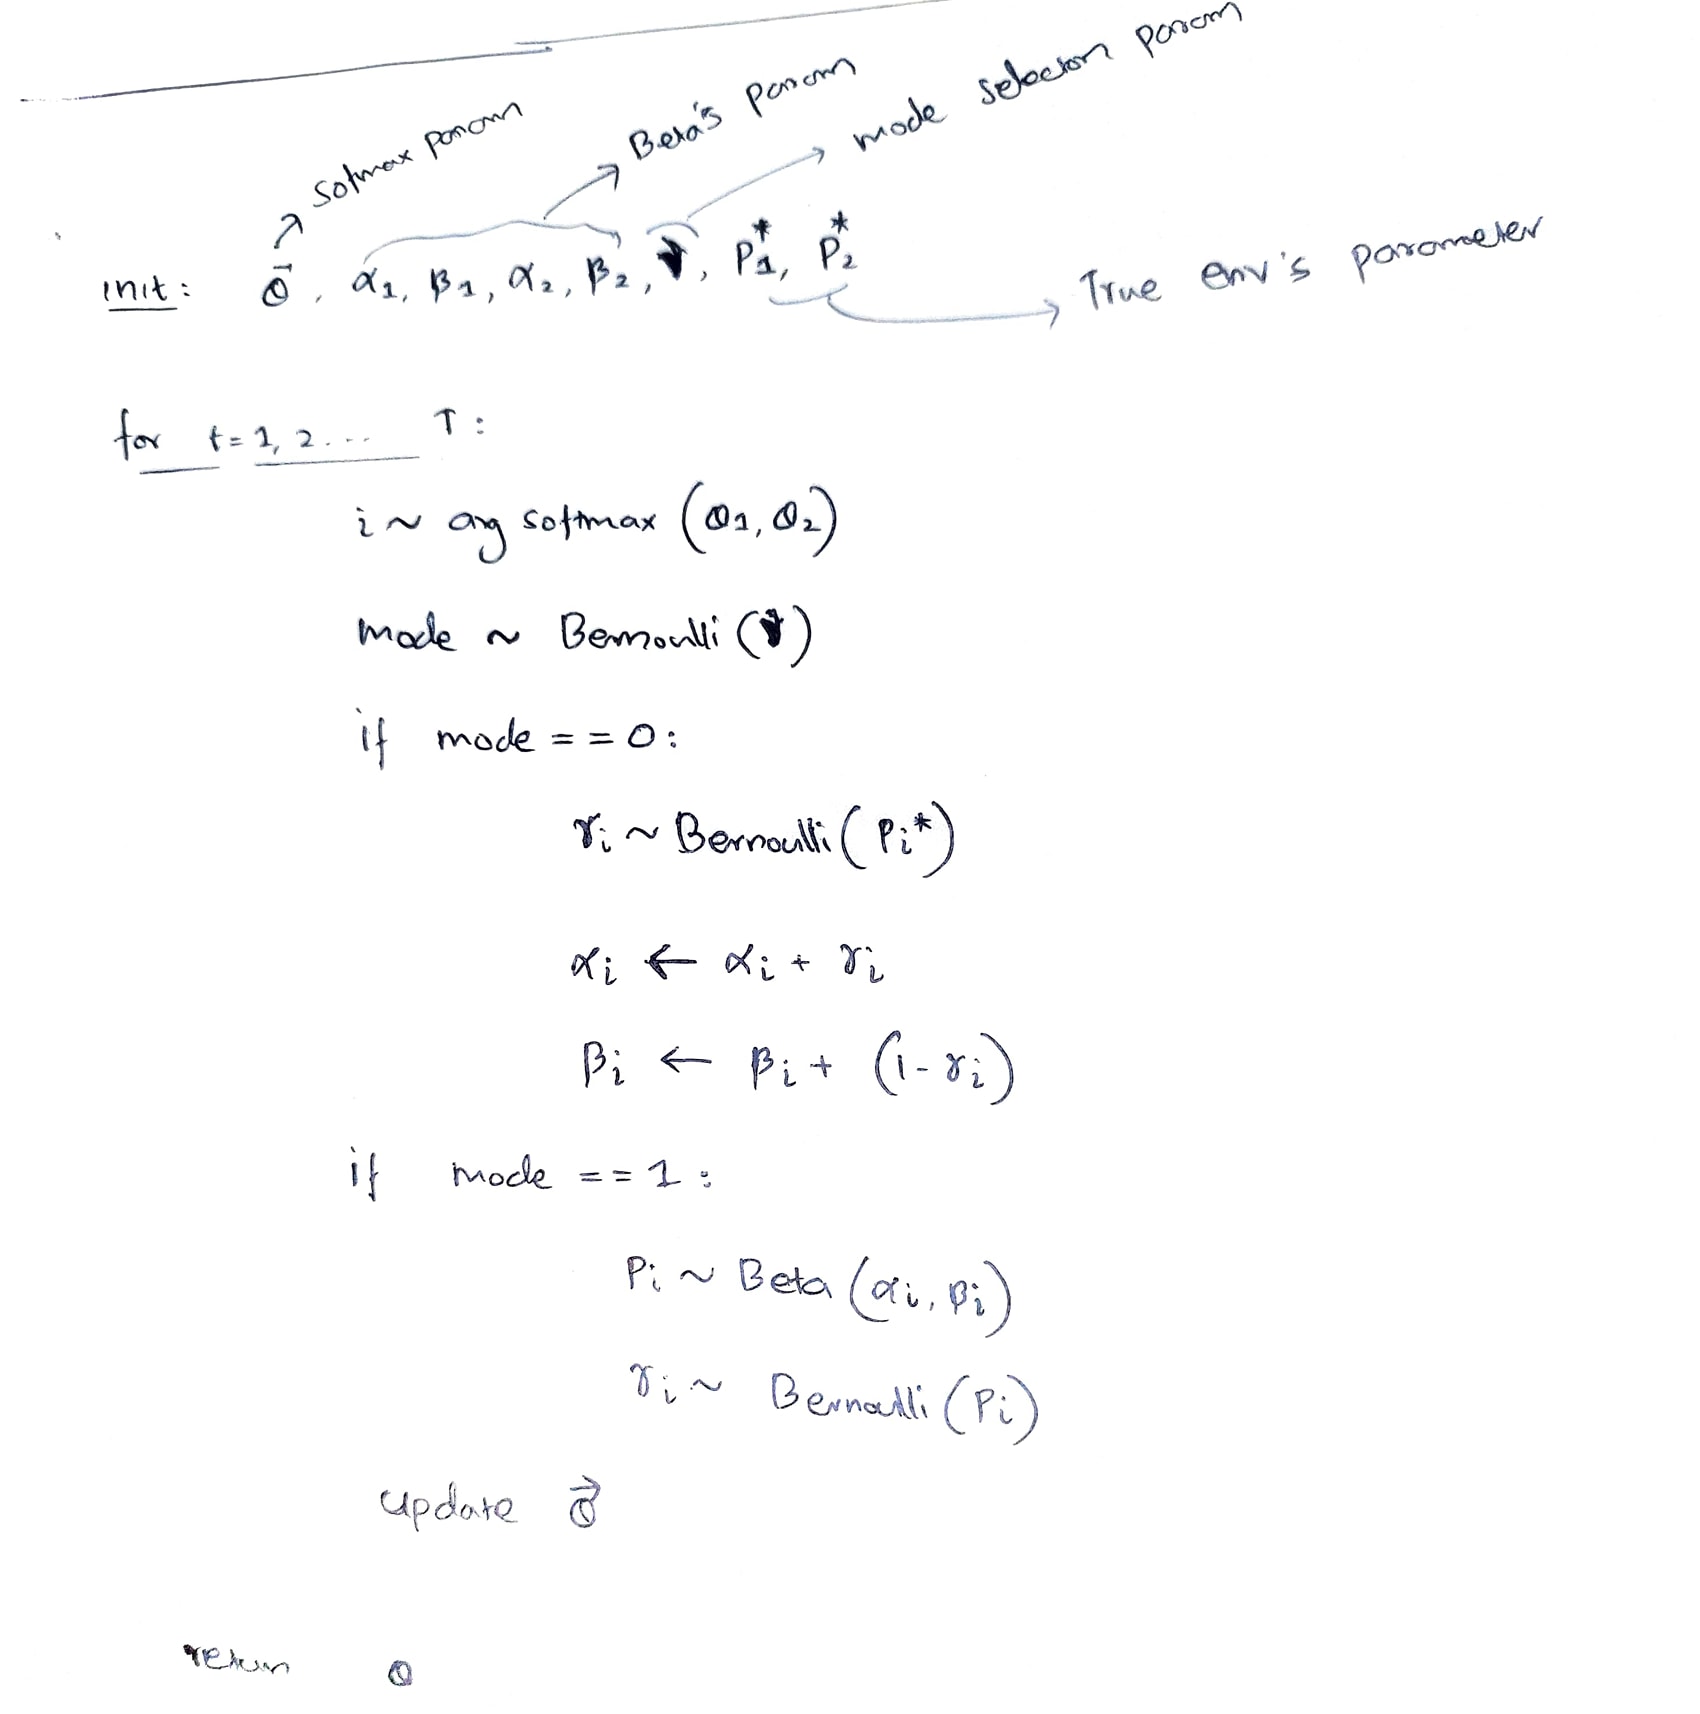 softmax param
Beta's param
mode selection param
init: θ⃗, α₁, β₁, α₂, β₂, , P₁*, P₂*
True env's parameter
for t=1, 2.... T:
i ~ arg softmax (θ₁, θ₂)
mode ~ Bernoulli ( )
if mode == 0:
rᵢ ~ Bernoulli (Pᵢ*)
αᵢ ← αᵢ + rᵢ
βᵢ ← βᵢ + (1-rᵢ)
if mode == 1:
Pᵢ ~ Beta (αᵢ, βᵢ)
rᵢ ~ Bernoulli (Pᵢ)
update θ⃗
return θ